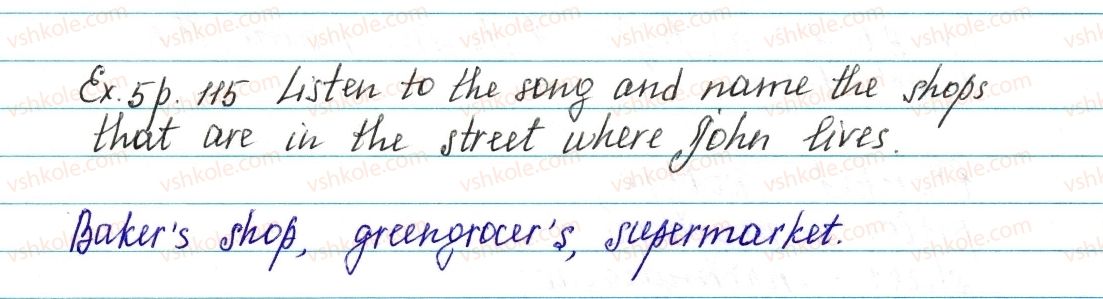 Ex. 5 p. 115 Listen to the song and name the shops
that are in the street where John lives.
Baker's shop, greengrocer's, supermarket.